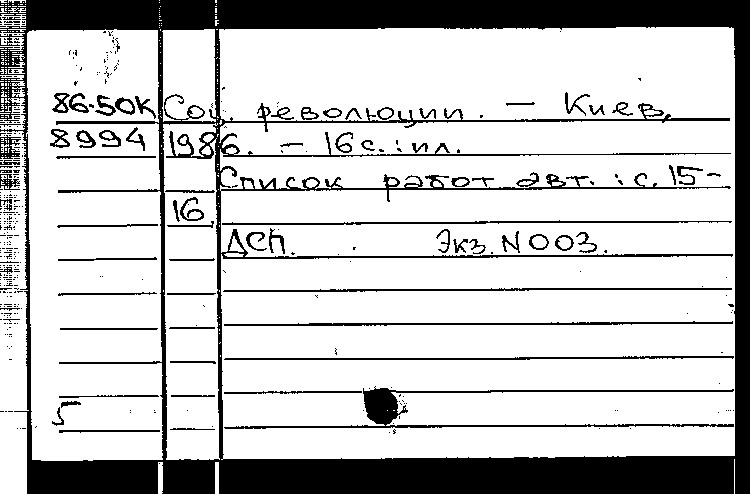 86-50К Соц. революции. — Киев,
8994 1986. — 16 с. : ил.
Список работ авт. : с. 15-
16.
ДСП. Экз. N 003.
5